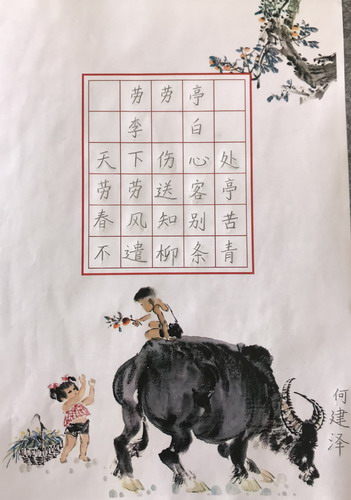 劳劳亭
李白
天下伤心处
劳劳送客亭
春风知别苦
不遣柳条青
何建泽